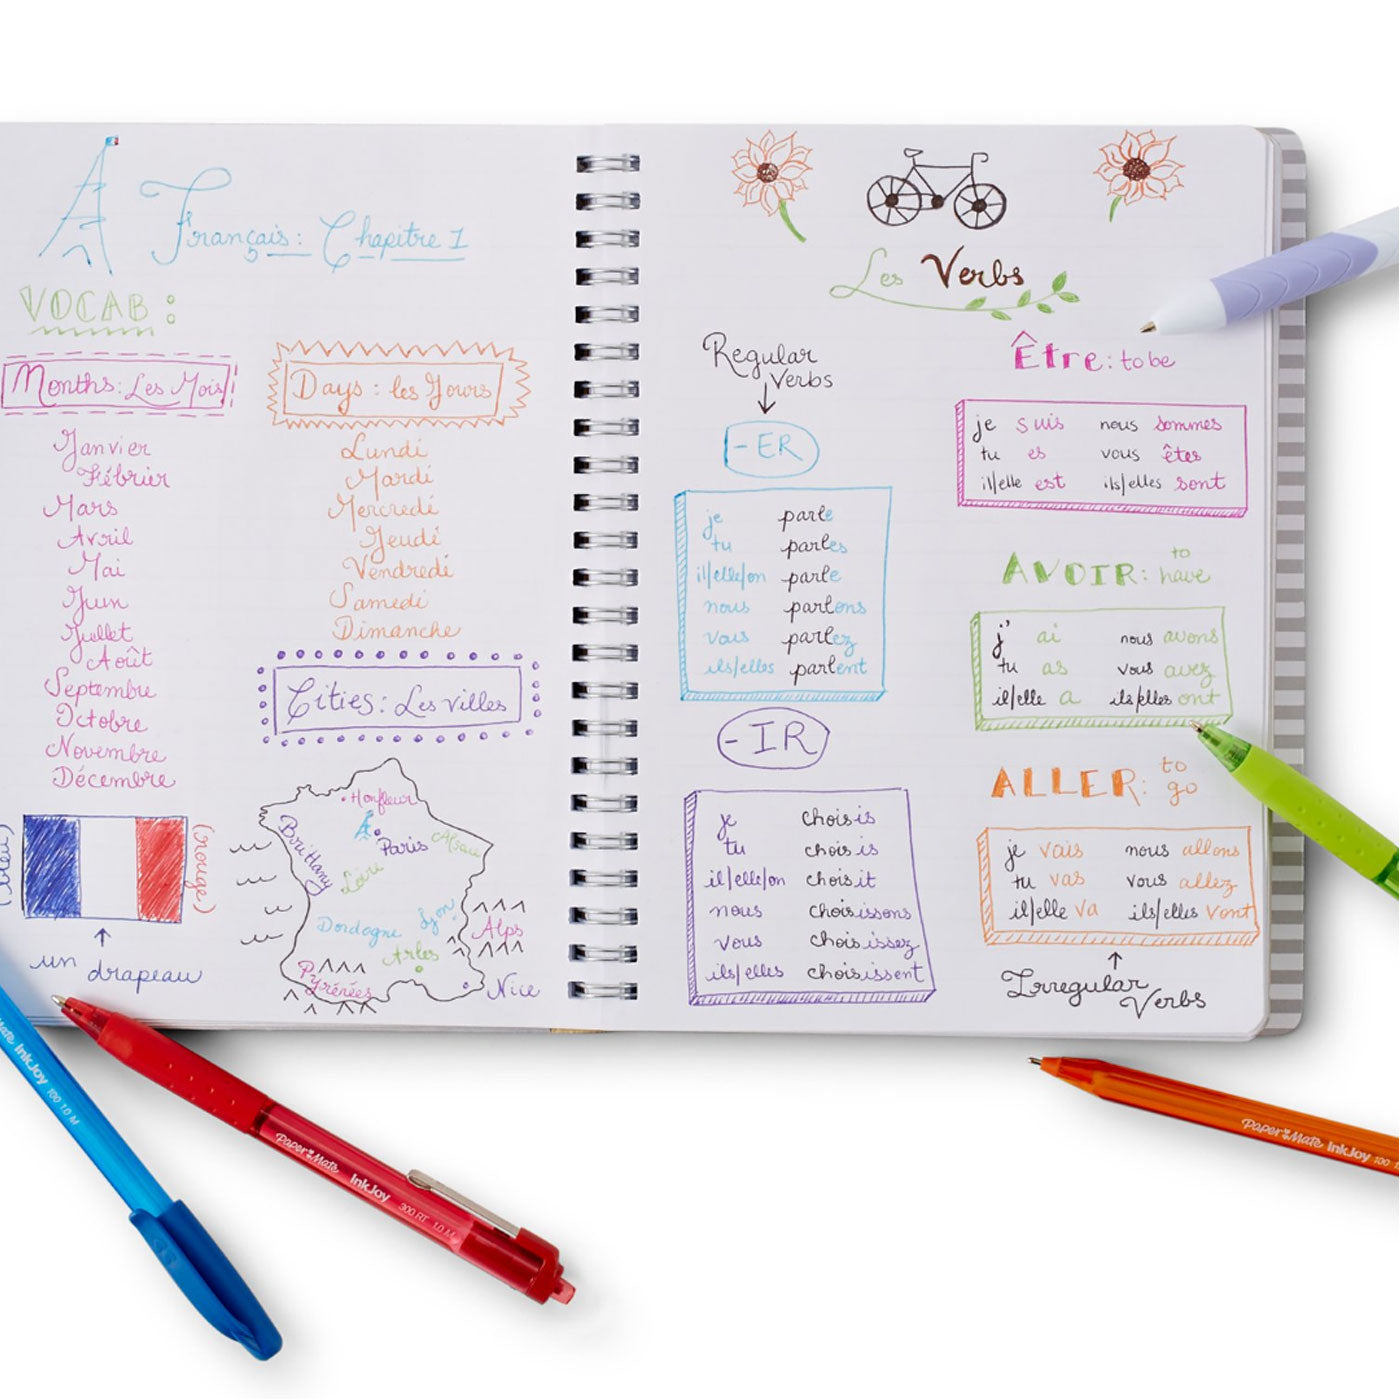 Français: Chapitre 1
VOCAB:
Months: Les Mois
Janvier
Fébrier
Mars
Avril
Mai
Juin
Juillet
Août
Septembre
Octobre
Novembre
Décembre
Days: les Jours
Lundi
Mardi
Mercredi
Jeudi
Vendredi
Samedi
Dimanche
Cities: Les Villes
(bleu)
(rouge)
un drapeau
Honfleur
Brittany
Paris
Alsace
Loire
Dordogne
Lyon
Arles
Alps
Pyrénées
Nice
Les Verbs
Regular
Verbs
-ER
je parle
tu parles
il/elle/on parle
nous parlons
vous parlez
ils/elles parlent
-IR
je choisis
tu choisis
il/elle/on choisit
nous choisissons
vous choisissez
ils/elles choisissent
Être: to be
je suis nous sommes
tu es vous êtes
il/elle est ils/elles sont
AVOIR: to have
j' ai nous avons
tu as vous avez
il/elle a ils/elles ont
ALLER: to go
je vais nous allons
tu vas vous allez
il/elle va ils/elles vont
Irregular
Verbs
Paper Mate InkJoy 100 1.0 M
Paper Mate InkJoy 300 RT 1.0 M
Paper Mate InkJoy 100